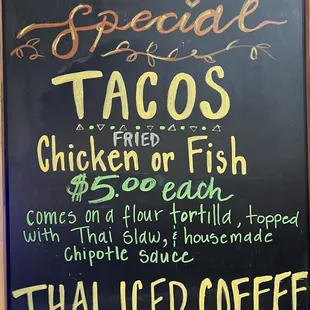 Special
TACOS
FRIED
Chicken or Fish
$5.00 each
comes on a flour tortilla, topped
with Thai slaw, & housemade
Chipotle sauce
THAI ICED COFFEE